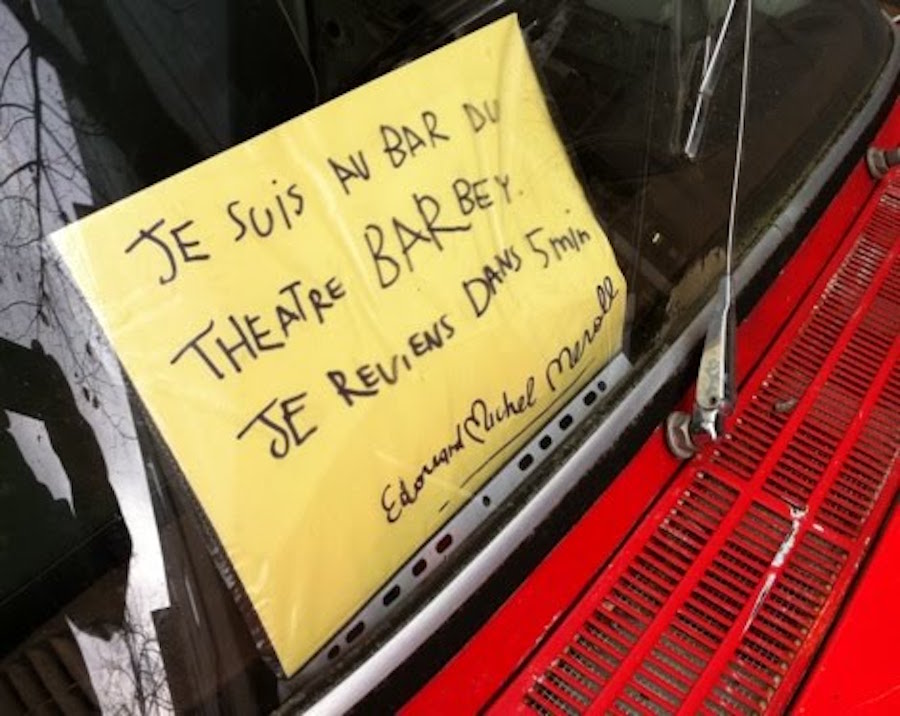 JE SUIS AU BAR DU
THEATRE BARBEY.
JE REVIENS DANS 5 min
Edouard Michel Meroll